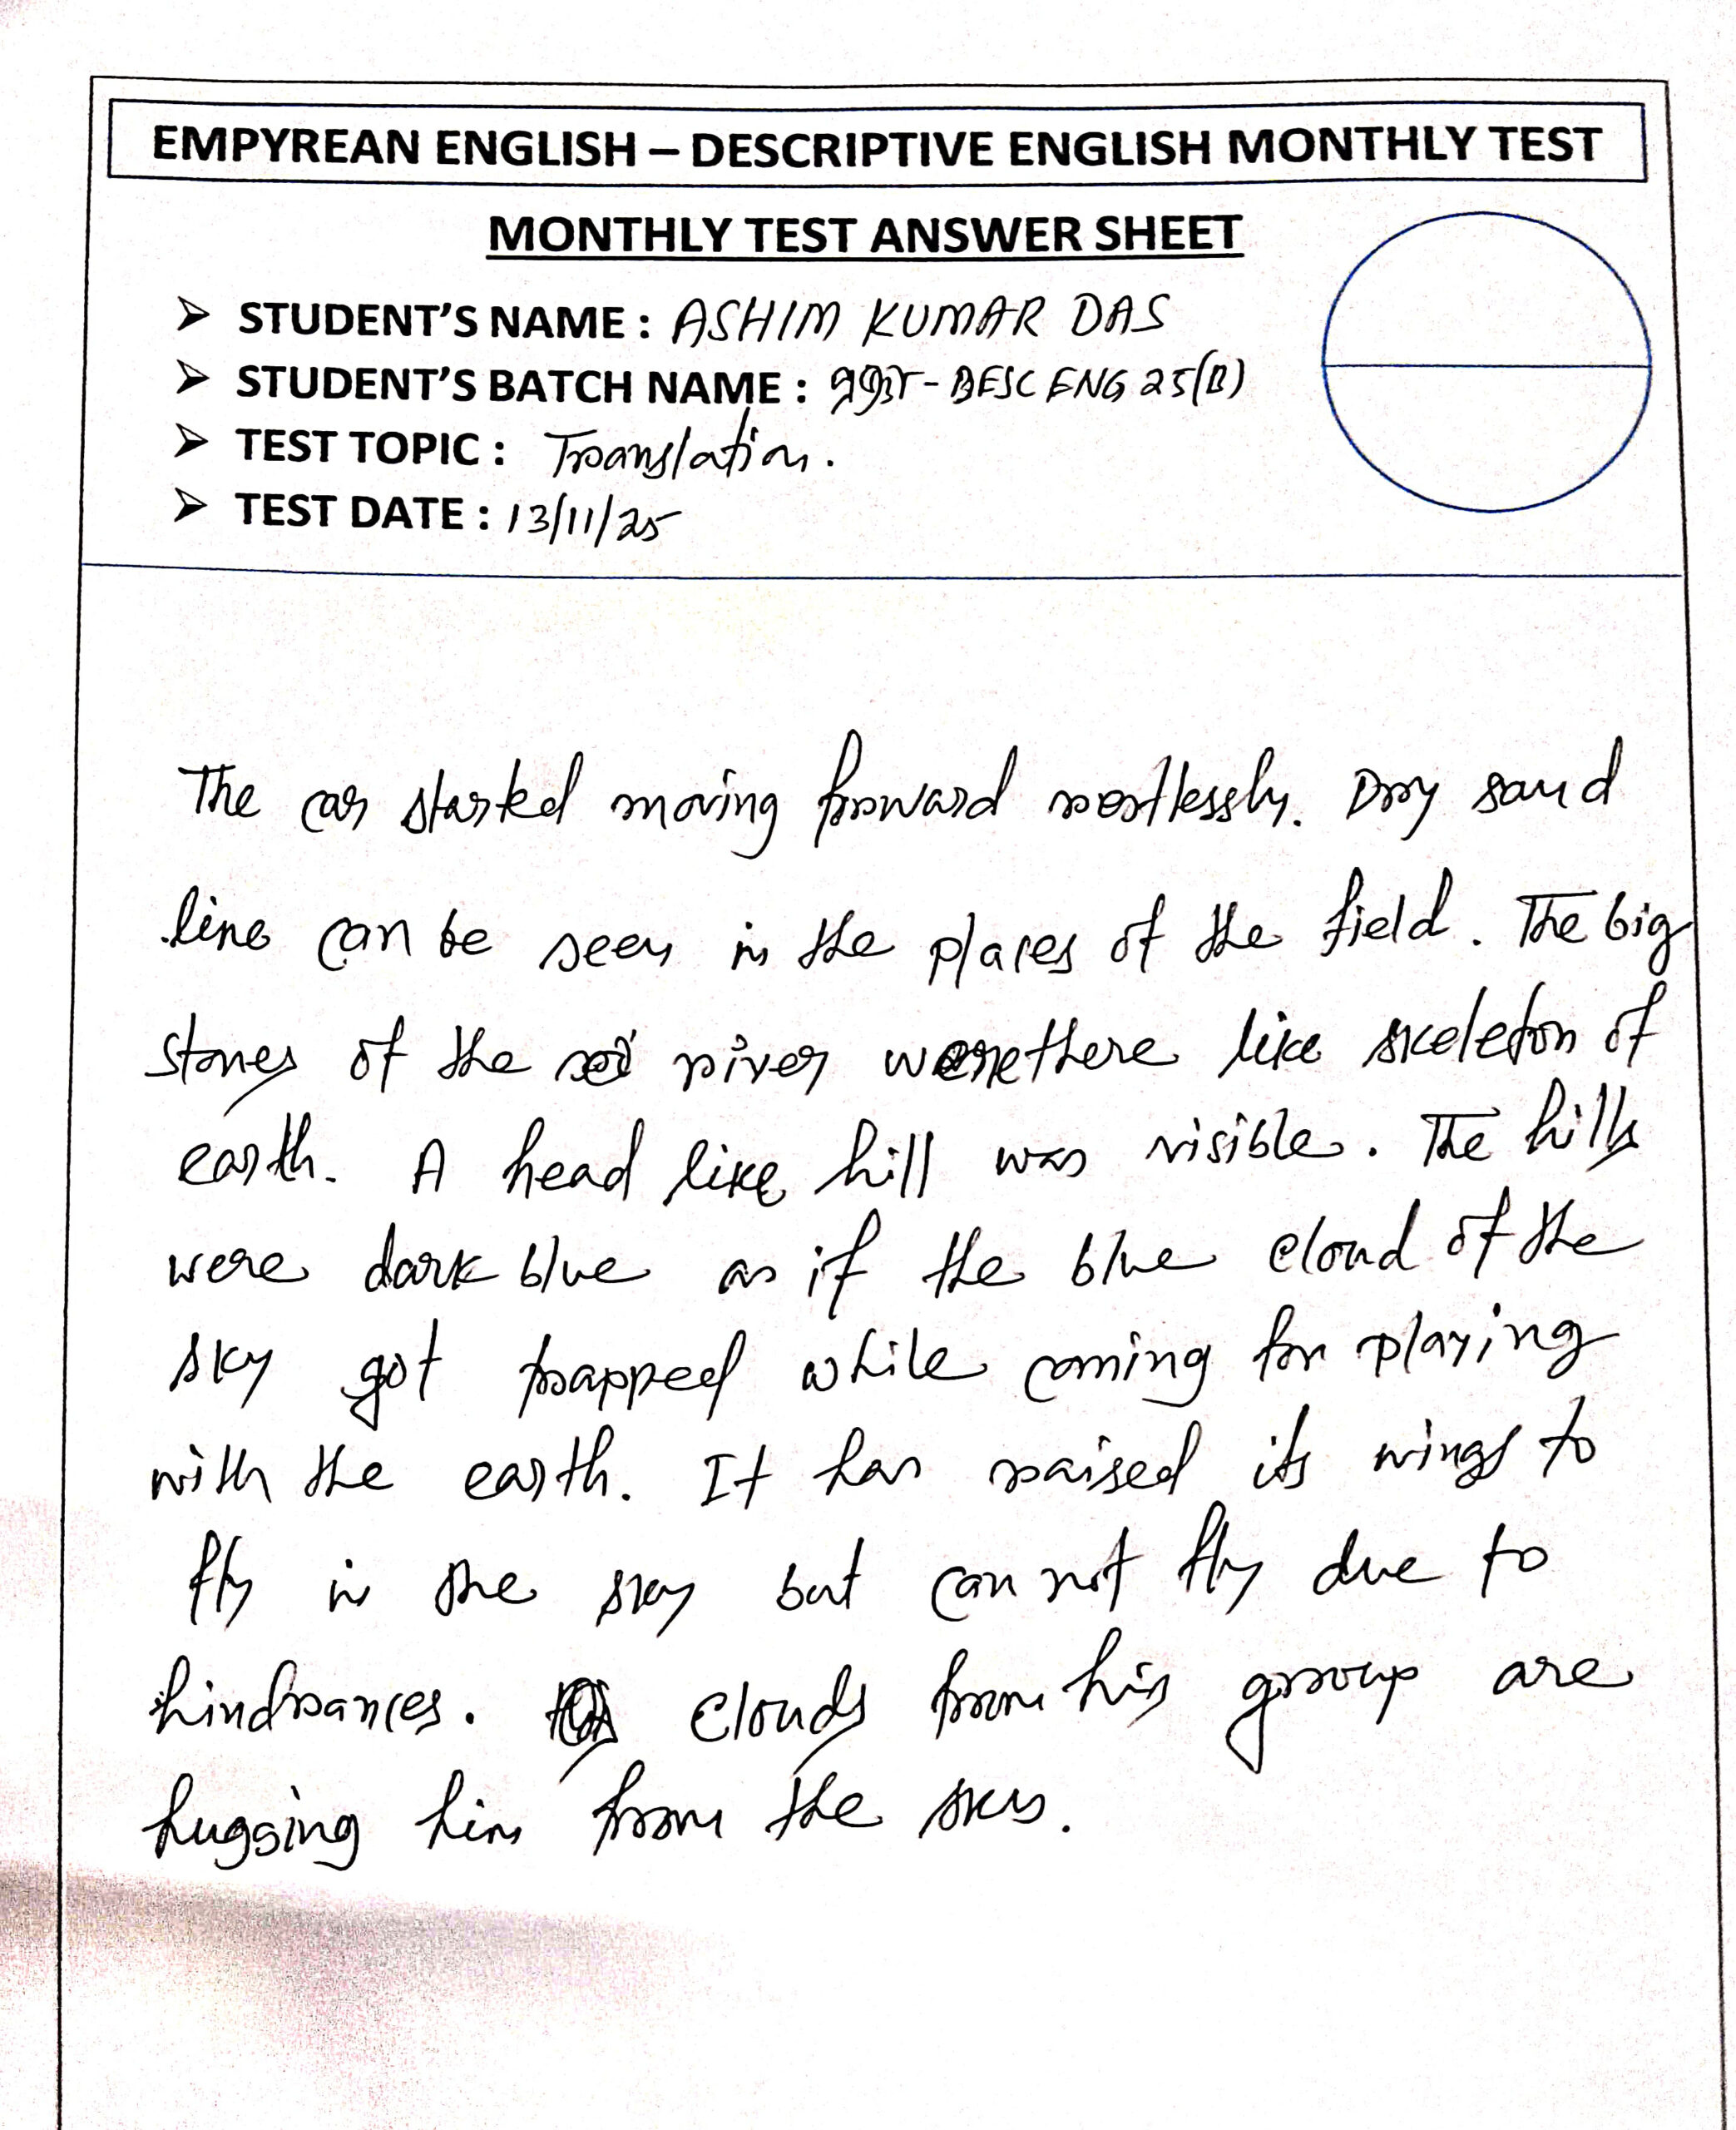 EMPYREAN ENGLISH – DESCRIPTIVE ENGLISH MONTHLY TEST
MONTHLY TEST ANSWER SHEET
➢ STUDENT'S NAME : ASHIM KUMAR DAS
➢ STUDENT'S BATCH NAME : - DESC ENG 25(B)
➢ TEST TOPIC : Translation.
➢ TEST DATE : 13/11/25
The car started moving forward restlessly. Dry sand
line can be seen in the places of the field. The big
stones of the river were there like skeleton of
earth. A head like hill was visible. The hills
were dark blue as if the blue cloud of the
sky got trapped while coming for playing
with the earth. It has raised its wings to
fly in the sky but can not fly due to
hindrances. clouds from his group are
hugging him from the sky.